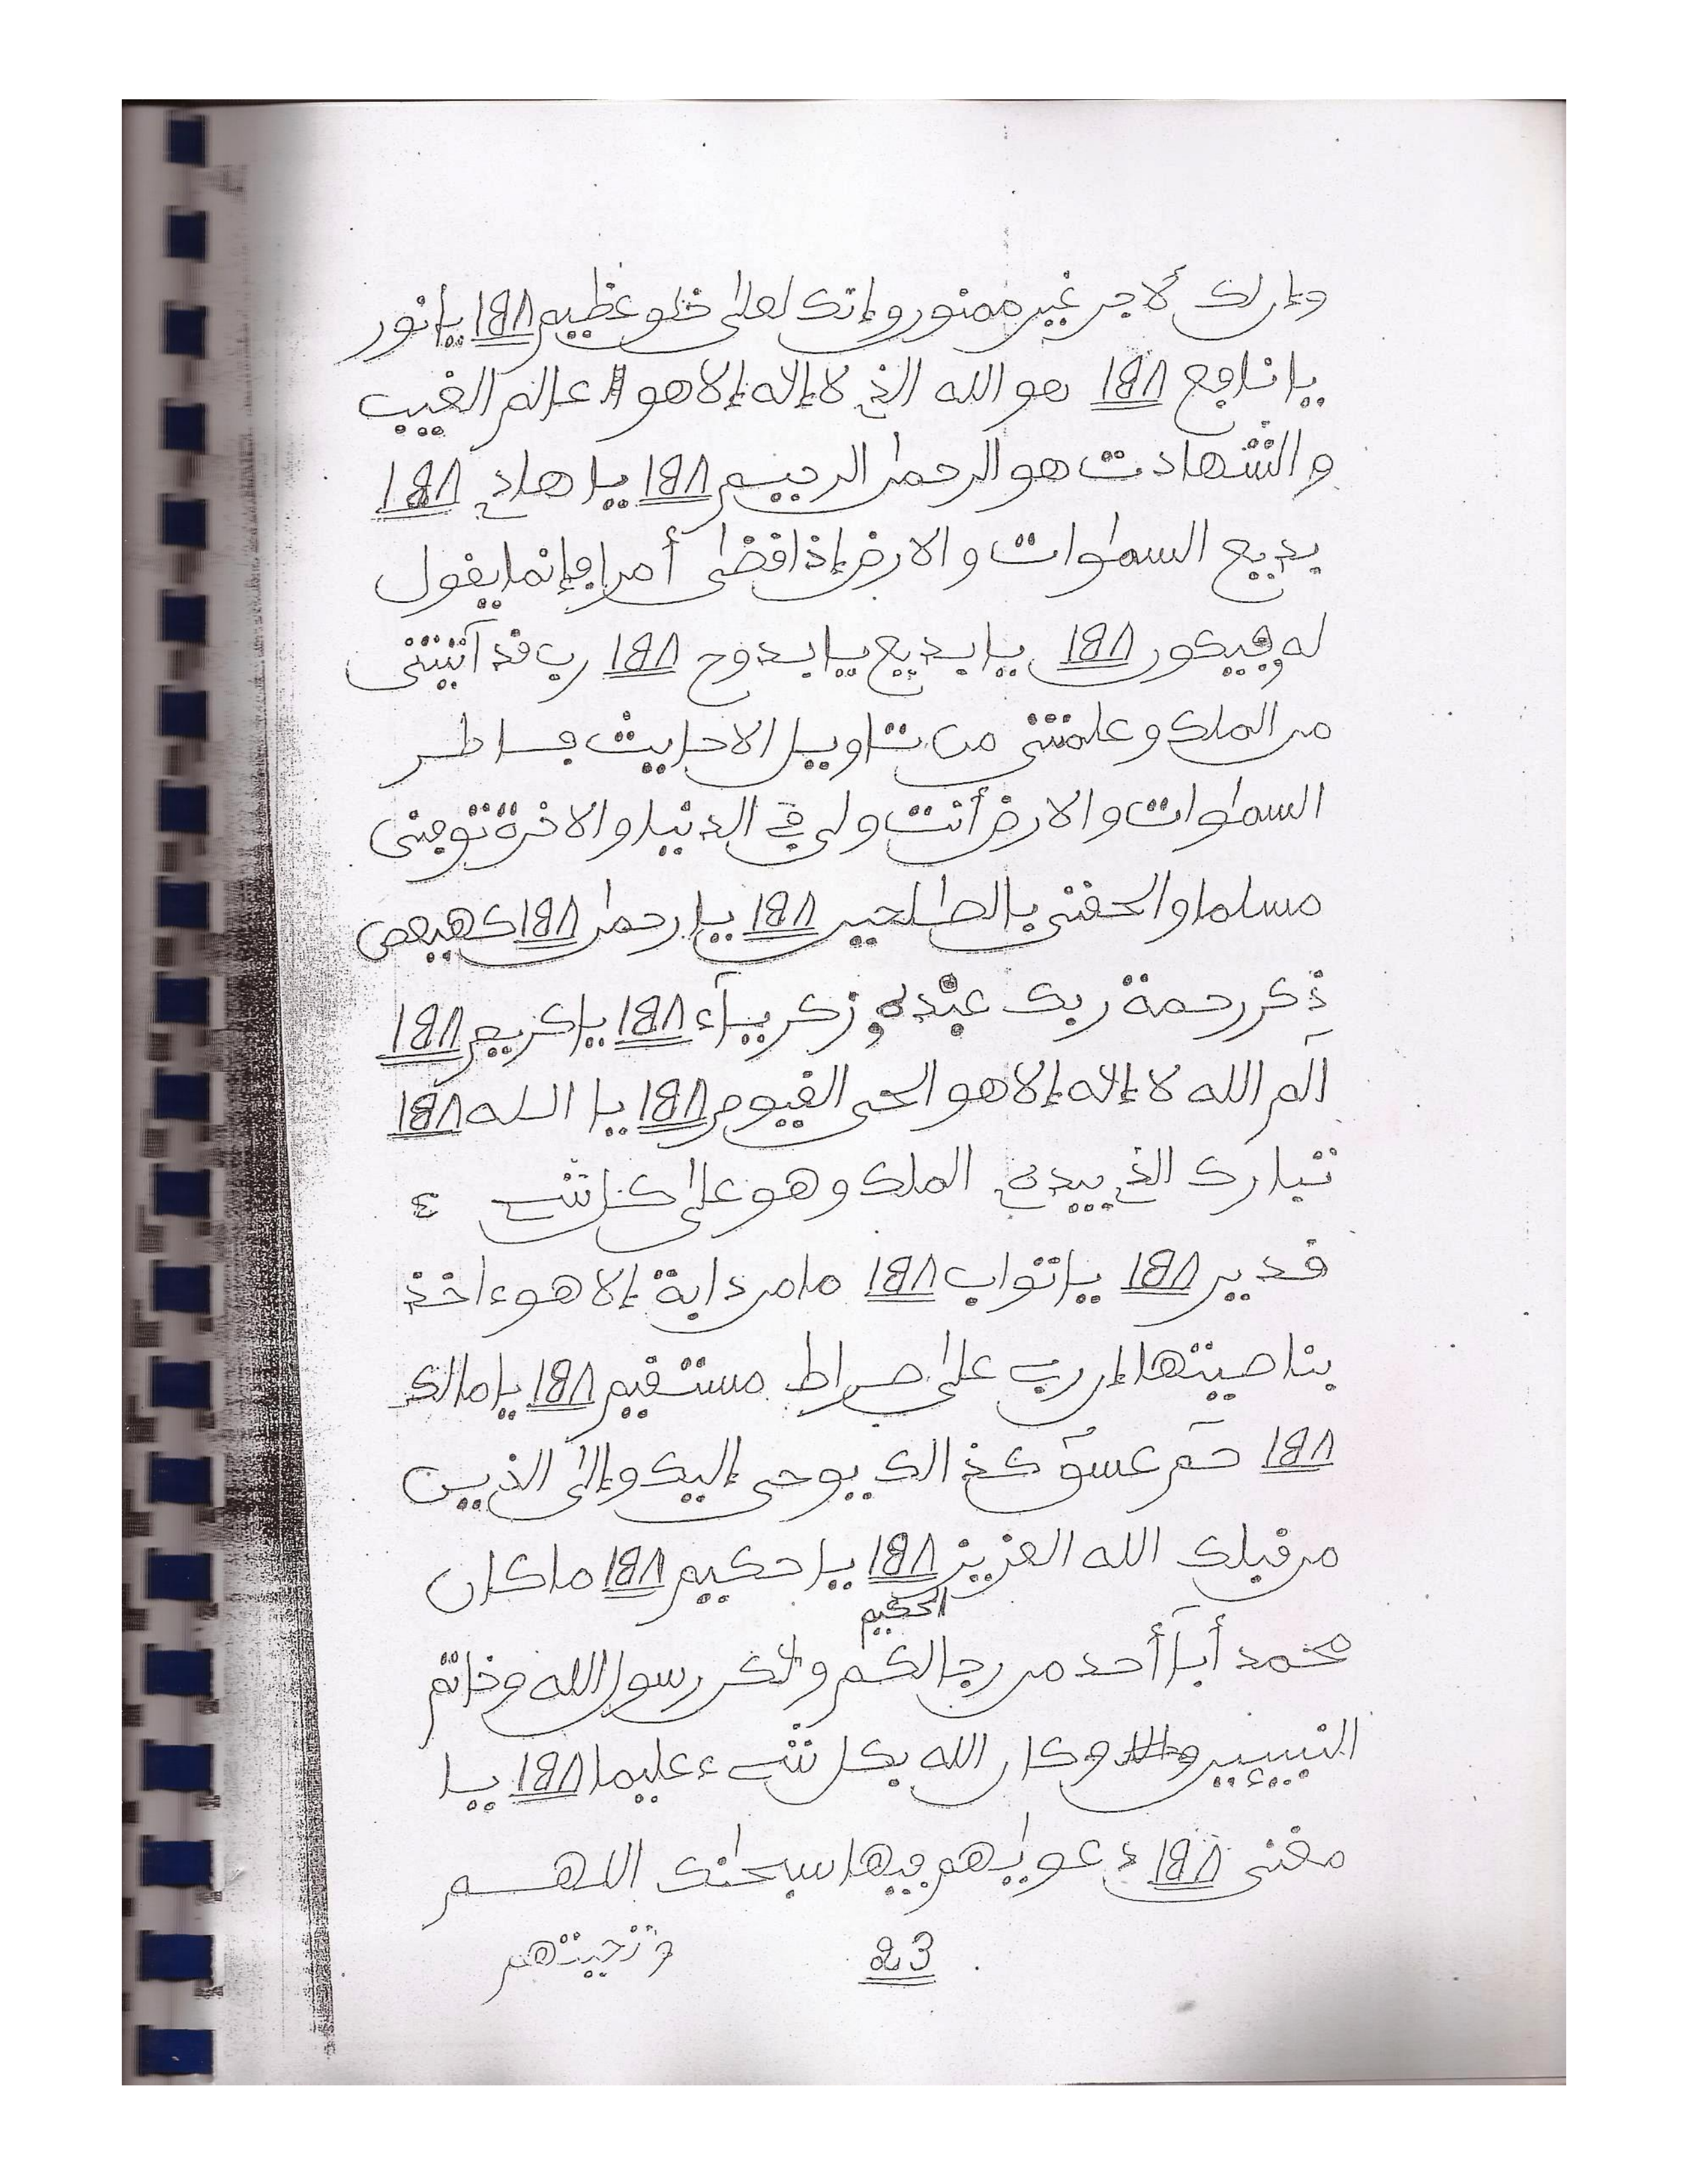 وإن لك لأجر غير ممنون وإنك لعلى خلق عظيم ١٨٨ يا نور
يا نافع ١٨٨ هو الله الذي لا إله إلا هو عالم الغيب
والشهادت هو الرحمن الرحيم ١٨٨ يا هادي ١٨٨
بديع السموات والارض إذا قضى أمرا فإنما يقول
له فيكون ١٨٨ يا بديع يا بدوح ١٨٨ رب قد آتيتني
من الملك وعلمتني من تاويل الاحاديث فاطر
السموات والارض أنت ولي في الدنيا والاخرة توفني
مسلما والحقني بالصالحين ١٨٨ يا رحمن ١٨٨ كهيعص
ذكر رحمة ربك عبده زكرياء ١٨٨ يا كريم ١٨٨
آلم الله لا إله إلا هو الحي القيوم ١٨٨ يا الله ١٨٨
تبارك الذي بيده الملك وهو على كل شيء
قدير ١٨٨ يا تواب ١٨٨ ما من دابة إلا هو ءاخذ
بناصيتها إن ربي على صراط مستقيم ١٨٨ يا مالك
١٨٨ حم عسق كذالك يوحى إليك وإلى الذين
من قبلك الله العزيز ١٨٨ يا حكيم ١٨٨ ما كان
الحكيم
محمد أبا أحد من رجالكم ولكن رسول الله وخاتم
النبيئين وكان الله بكل شيء عليما ١٨٨ يا
مغني ١٨٨ دعويهم فيها سبحنك اللهم
23 وتحيتهم